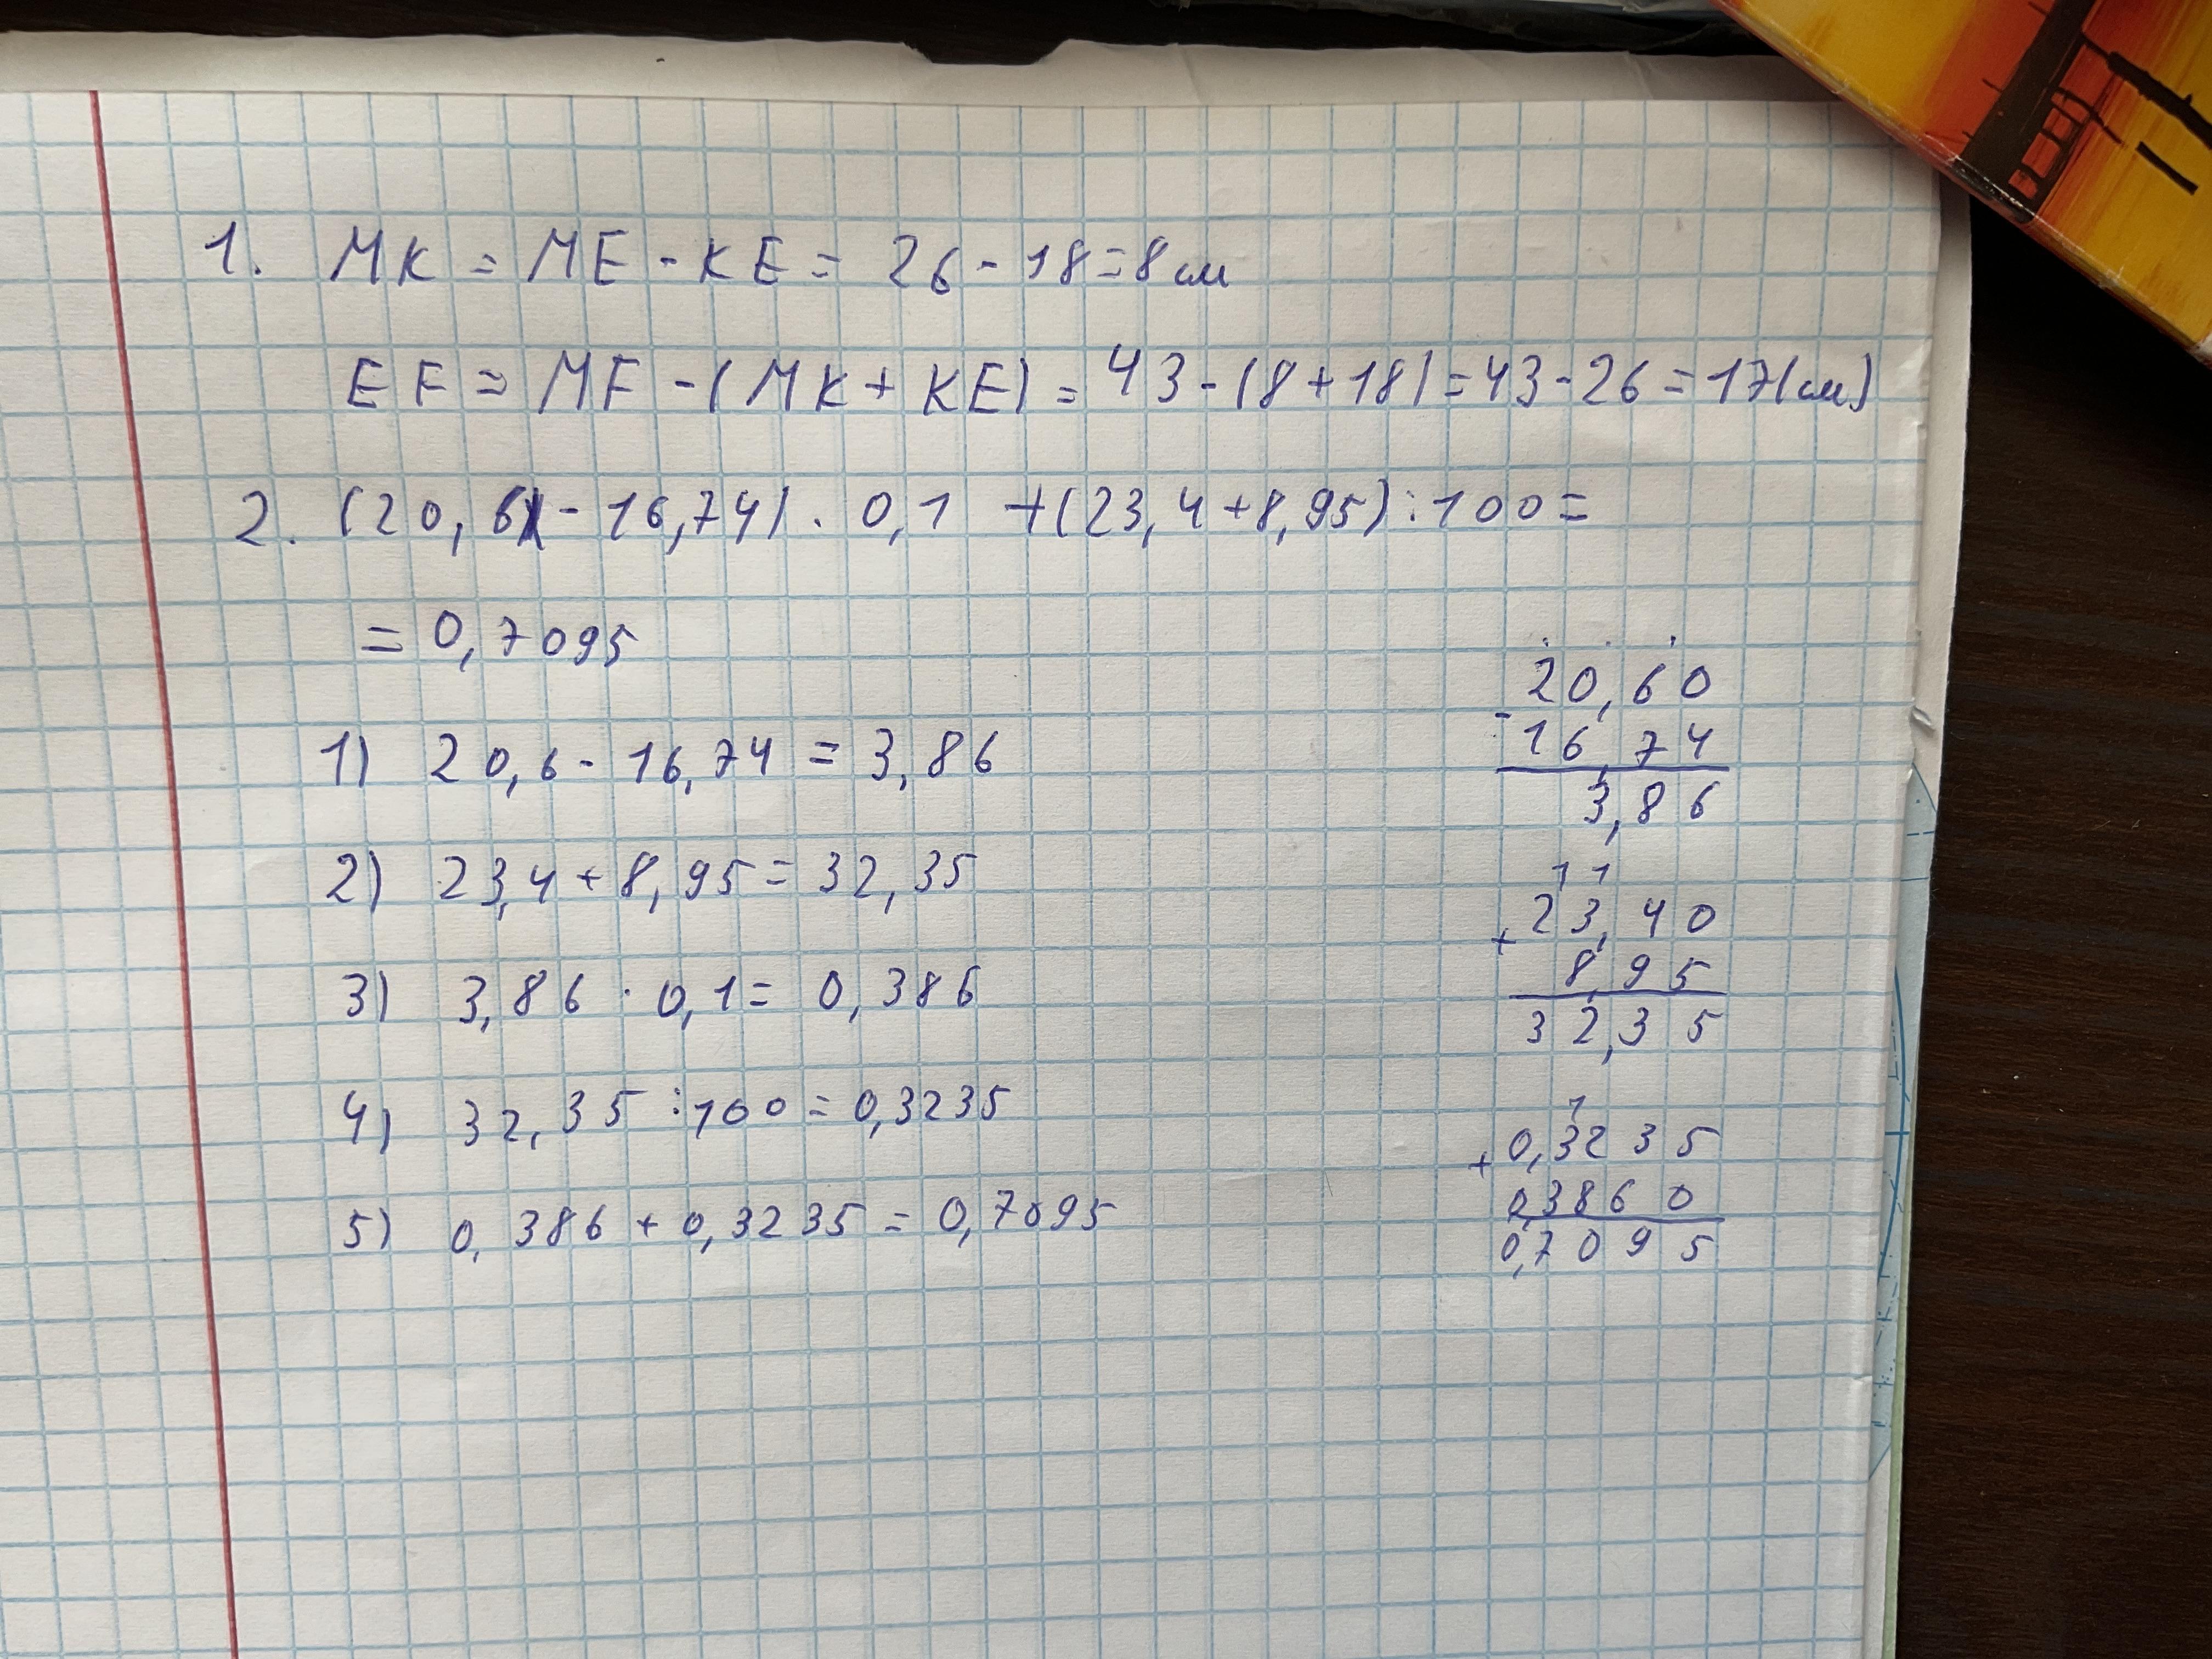 1. MK = ME - KE = 26 - 18 = 8 см
EF = MF - (MK + KE) = 43 - (8 + 18) = 43 - 26 = 17 (см)
2. (20,6 - 16,74) · 0,1 + (23,4 + 8,95) : 100 =
= 0,7095
1) 20,6 - 16,74 = 3,86
2) 23,4 + 8,95 = 32,35
3) 3,86 · 0,1 = 0,386
4) 32,35 : 100 = 0,3235
5) 0,386 + 0,3235 = 0,7095
20,60
-
16,74
3,86
1 1
23,40
+
8,95
32,35
1
0,3235
+
0,3860
0,7095